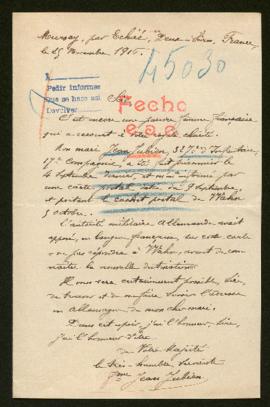 Mursay, par Echiré, Deux-Sèvres, France,
le 25 Novembre 1915.
45030
Pedir informes
Que se hace así
Devolver
Sire
Fecho
C'est encore une pauvre femme française
qui a recours à votre royale charité.
Mon mari Jean Julien, 327e d'Infanterie,
17e Compagnie, a été fait prisonnier le
4 Septembre dernier et m'a informé par
une carte postale du 9 Septembre,
et portant le cachet postal de Wahn,
3 octobre.
L'autorité militaire Allemande avait
apposé, en langue française, sur cette carte
ne pas répondre à Wahn, avant de
connaître la nouvelle
Il vous sera certainement possible, Sire,
de trouver et de me faire savoir l'adresse
en Allemagne de mon cher mari.
Dans cet espoir, j'ai l'honneur, Sire,
j'ai l'honneur d'être
de Votre Majesté
la très-humble servante
Jean Julien